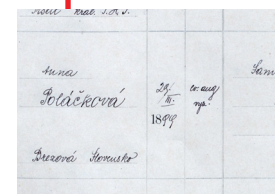 Anna
Poláčková
29.
III.
1899
ev. aug
nys.
Brezová Slovensko